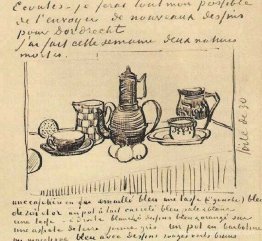 Ecoutes - je ferai tout mon possible
de t'envoyer de nouveaux dessins
pour Dordrecht
J'ai fait cette semaine deux natures
mortes.
toile de 30
une cafetière en fer émaillé bleu une tasse (à gauche) bleu
un pot à lait carrelé bleu
une tasse à droite blanche à dessins bleus orangé sur
une assiette de terre jaune gris un pot en barbotine
bleu avec dessins rouges verts bruns